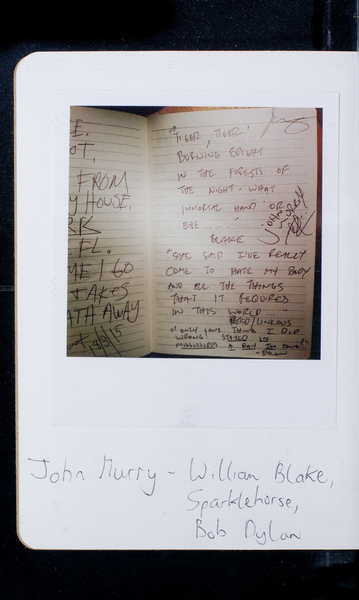 E.
OT,
FROM
Y HOUSE,
RK
FL.
ME I GO
TAKES
ATH AWAY
"TIGER, TIGER!
BURNING BRIGHT
IN THE FORESTS OF
THE NIGHT - WHAT
IMMORTAL HAND OR
EYE ....."
BLAKE
John Murry
"SHE SAID I'VE REALLY
COME TO HATE MY BODY
AND ALL THE THINGS
THAT IT REQUIRES
IN THIS WORLD ..."
REED/LINKOUS
"ONLY ONE THING I DID
WRONG STAYED IN
MISSISSIPPI A DAY TOO LONG"
-DYLAN
John Murry - William Blake,
Sparklehorse,
Bob Dylan